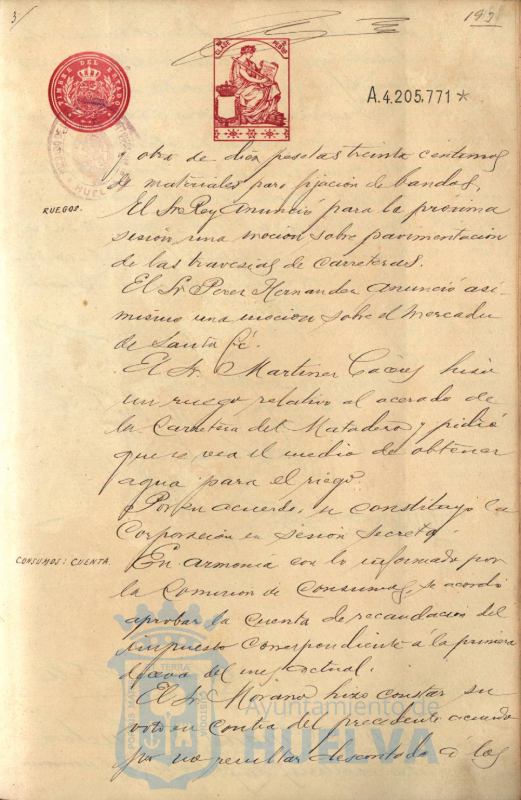 3
193
TIMBRE DEL ESTADO
CLASE
A.4.205.771*
y otra de diez pesetas treinta centimos
de materiales para fijacion de bandos.
RUEGOS.
El Sr Rey anunció para la proxima
sesión una mocion sobre pavimentacion
de las travesias de carreteras.
El Sr Perez Hernandez anunció asi-
mismo una mocion sobre el mercado
de Santa Fé.
El Sr. Martinez Cáceres hizo
un ruego relativo al acerado de
la Carretera del Matadero y pidió
que se vea el medio de obtener
agua para el riego.
Por su acuerdo, se constituyó la
Corporacion en sesión secreta.
CONSUMOS: CUENTA.
En armonia con lo informado por
la Comision de Consumos, se acordó
aprobar la cuenta de recaudacion del
impuesto correspondiente á la primera
decena del mes actual.
El Sr Morano hizo constar su
voto en contra del precedente acuerdo
por no resultar descontado á los
Ayuntamiento de
HUELVA